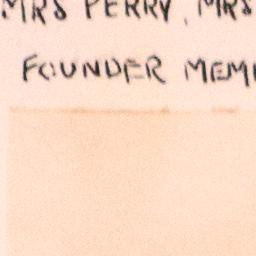 MRS PERRY, MRS
FOUNDER MEM